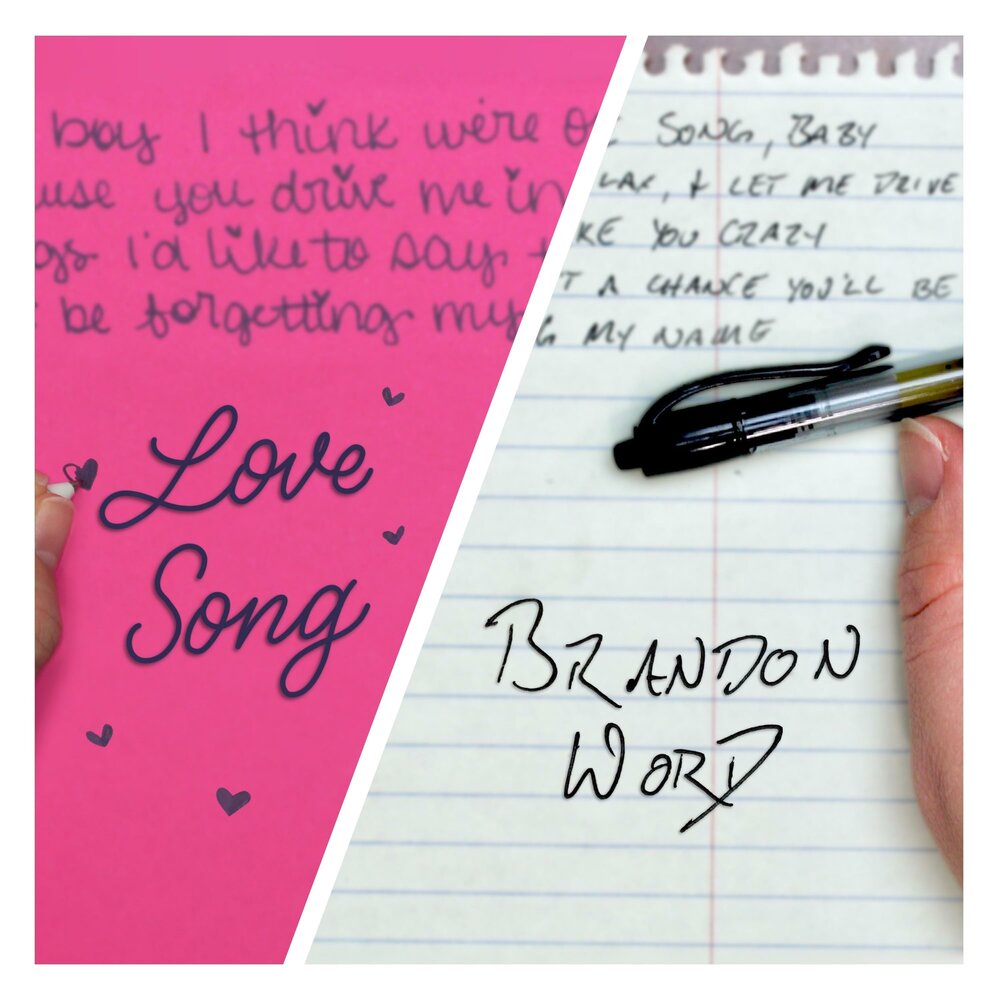 boy I think we're
use you drive me in
gs I'd like to say
be forgetting my
Love
Song
SONG, BABY
LAC, & LET ME DRIVE
KE YOU CRAZY
T A CHANCE YOU'LL BE
G MY NAME
BRANDON
WORD